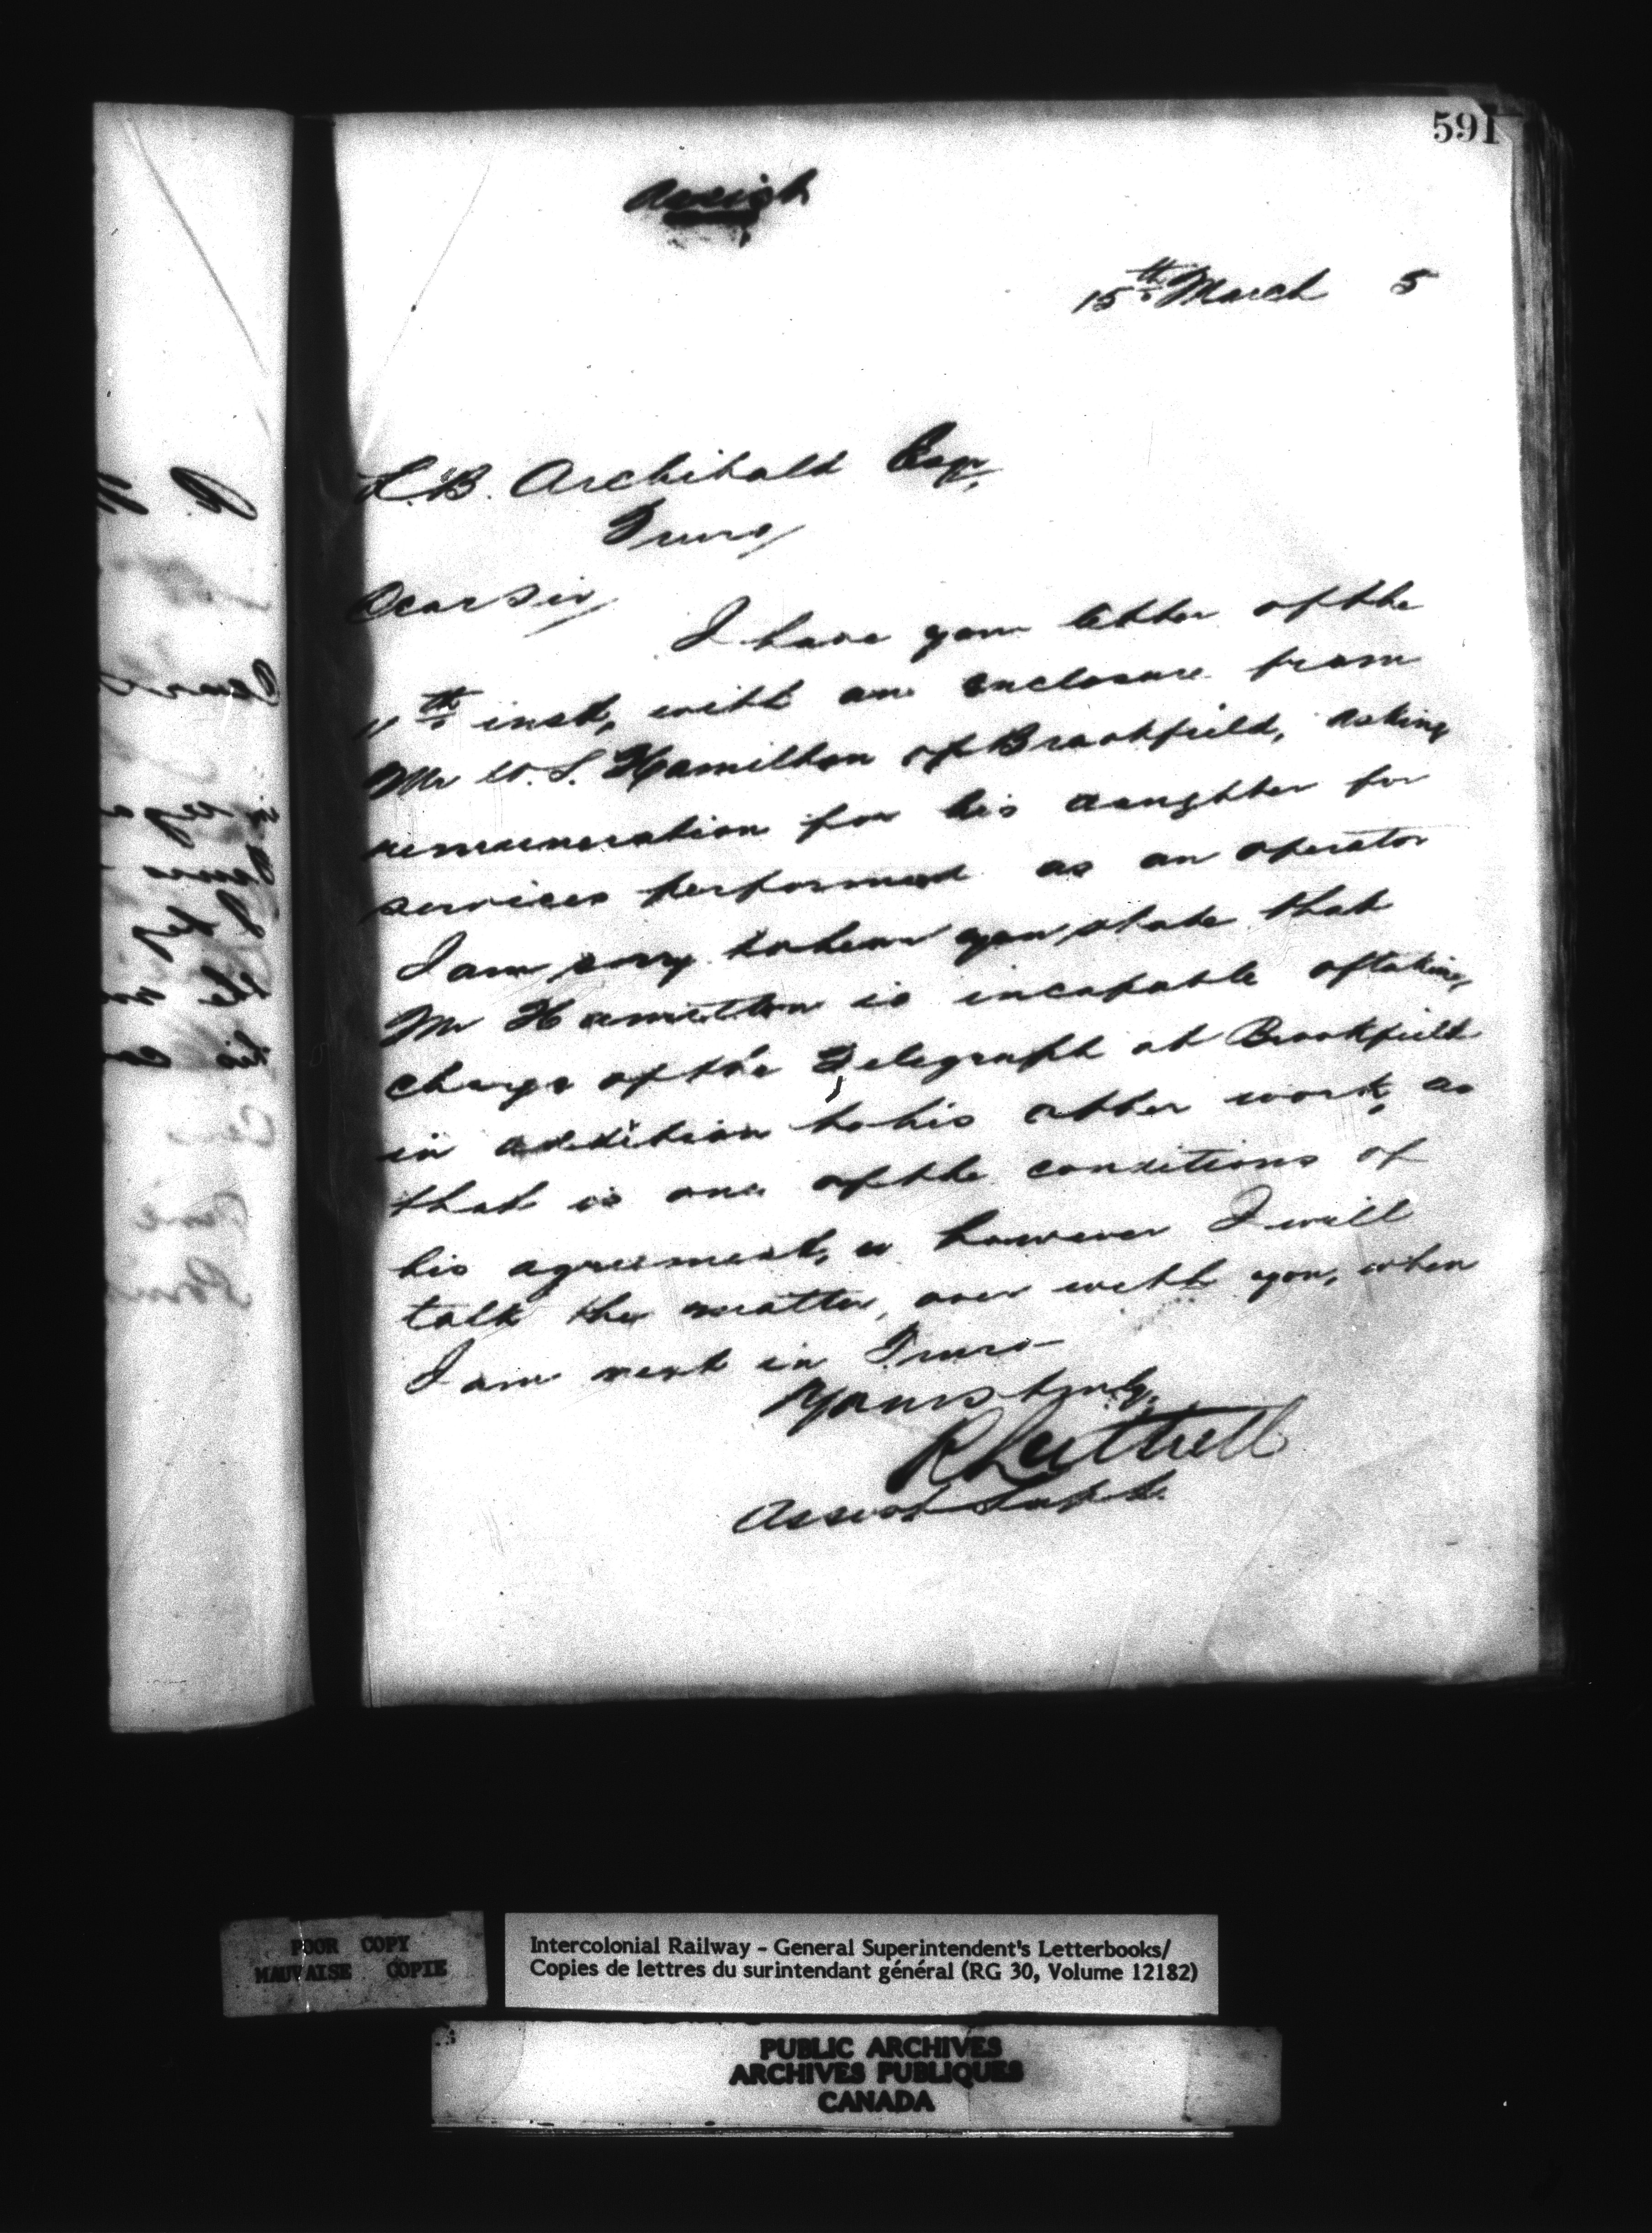 591
15th March 5
L.B. Archibald Esqr,
Truro,
Dear Sir,
I have your letter of the
11th inst, with an enclosure from
Mr W. S. Hamilton of Brookfield, asking
remuneration for his daughter for
services performed as an operator
I am sorry to hear you state that
Mr Hamilton is incapable of taking
charge of the Telegraph at Brookfield
in addition to his other work, as
that is one of the conditions of
his agreement, however I will
talk the matter, over with you, when
I am next in Truro-
Yours truly,
R Luttrell
Assist Supt.
POOR COPY
MAUVAISE COPIE
Intercolonial Railway - General Superintendent's Letterbooks/
Copies de lettres du surintendant général (RG 30, Volume 12182)
PUBLIC ARCHIVES
ARCHIVES PUBLIQUES
CANADA